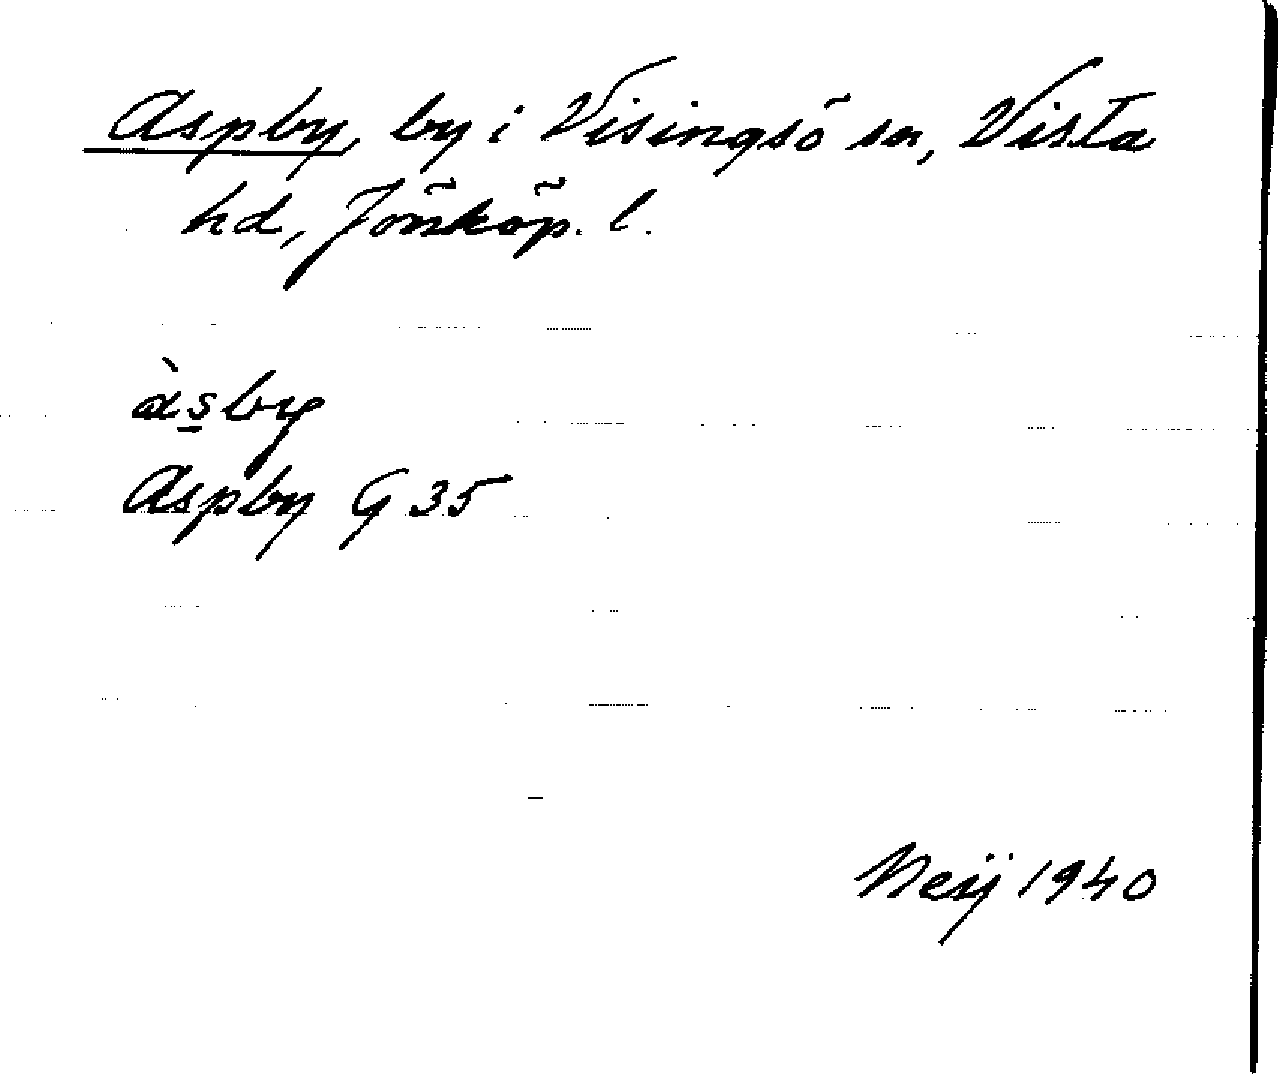 Aspby, by i Visingsö sn, Vista
hd, Jönköp. l.
àsby
Aspby G 35
Neij 1940